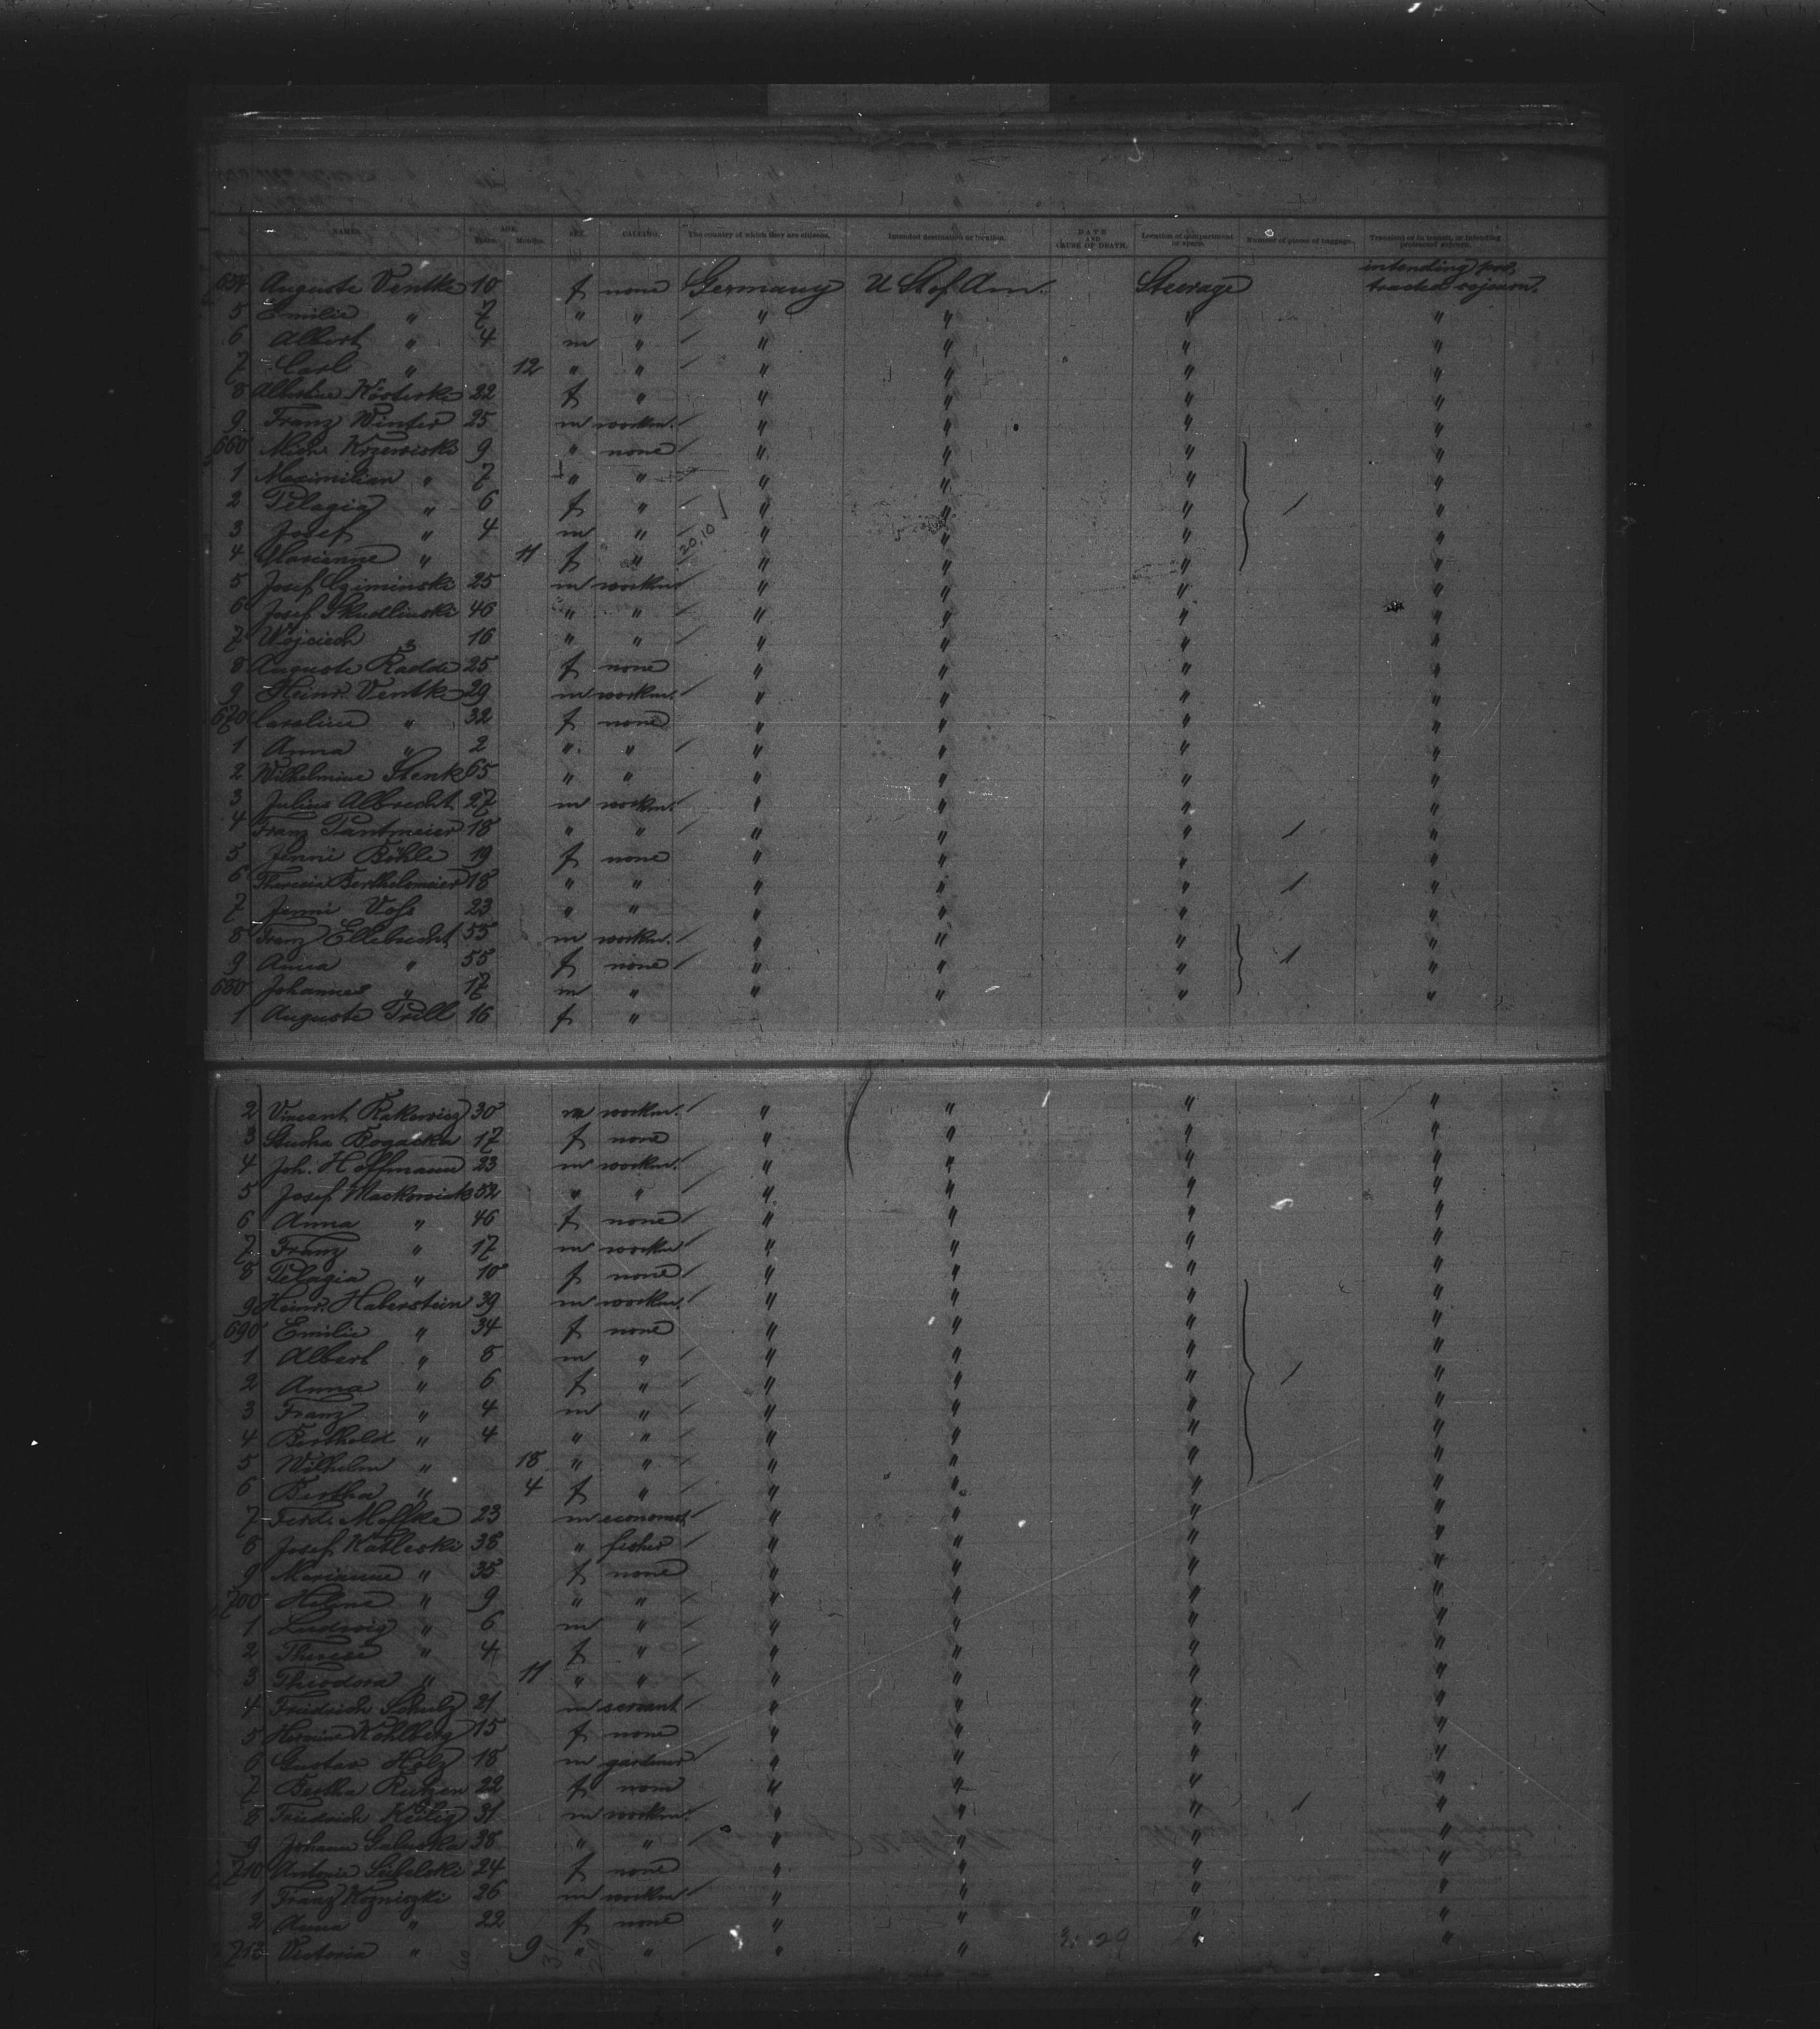 NAMES. AGE. Years. Months. SEX. CALLING. The country of which they are citizens. Intended destination or location. DATE AND CAUSE OF DEATH. Location of compartment or space. Number of pieces of baggage. Transient or in transit, or intending protracted sojourn.
654 Auguste Ventke 10 f none Germany U St of Am. Steerage intending protracted sojourn.
5 Emilie " 7 " " " " " "
6 Albert " 4 m " " " " "
7 Carl " 12 " " " " " "
8 Albertine 22 f " " " " "
9 Franz Winter 25 m workm. " " " "
660 Mich. Krzewiski 9 " none " " " "
1 Maximilian " 7 " " " " " "
2 Pelagia " 6 f " " " " 1 "
3 Josef " 4 m " " " " "
4 Marianne " 11 f " 20,10 " " " "
5 Josef Cziminski 25 m workm " " " "
6 Josef Skudlinski 46 " " " " " "
7 Wojciech " 16 " " " " " "
8 Auguste Radde 25 f none " " " "
9 Heinr. Ventke 29 m workm. " " " "
670 Caroline " 32 f none " " " "
1 Anna " 2 " " " " " "
2 Wilhelmine Stenk 65 " " " " " "
3 Julius Albrecht 27 m workm. " " " "
4 Franz Pantmeier 18 " " " " " 1 "
5 Jenni Böhle 19 f none " " " "
6 Theresia Berthelsmeier 18 " " " " " 1 "
7 Jenni Voss 23 " " " " " "
8 Franz Ellebrecht 55 m workm. " " " "
9 Anna " 55 f none " " " 1 "
680 Johannes " 17 m " " " " "
1 Auguste Prill 16 f "
2 Vincent Rakowicz 30 m workm. " " " "
3 Bogacka 17 f none " " " "
4 Joh. Hoffmann 23 m workm. " " " "
5 Josef Mackowiak 52 " " " " " "
6 Anna " 46 f none " " " "
7 Franz " 17 m workm " " " "
8 Pelagia " 10 f none " " " "
9 Heinr. Haberstein 39 m workm. " " " "
690 Emilie " 34 f none " " " "
1 Albert " 8 m " " " " "
2 Anna " 6 f " " " " 1 "
3 Franz " 4 m " " " " "
4 Berthold " 4 " " " " " "
5 Wilhelm " 18 " " " " " "
6 Bertha " 4 f " " " " "
7 Ferd. Moffke 23 m economist " " " "
8 Josef Katleski 38 " fisher " " " "
9 Marianne " 35 f none " " " "
700 Helene " 9 " " " " " "
1 Ludwig " 6 m " " " " "
2 Therese " 4 f " " " " "
3 Theodora " 11 " " " " " "
4 Friedrich Schulz 21 m servant " " " "
5 Hermine Kohlberg 15 f none " " " "
6 Gustav Holz 18 m gardener " " " "
7 Bertha Rutzen 22 f none " " " "
8 Friedrich Keilig 31 m workm. " " " 1 "
9 Johann Galuska 38 " " " " " "
710 Antonie 24 f none " " " "
1 Franz Kozniszki 26 m workm " " " "
2 Anna " 22 f none " " " "
713 Victoria " 9 " " " " " "